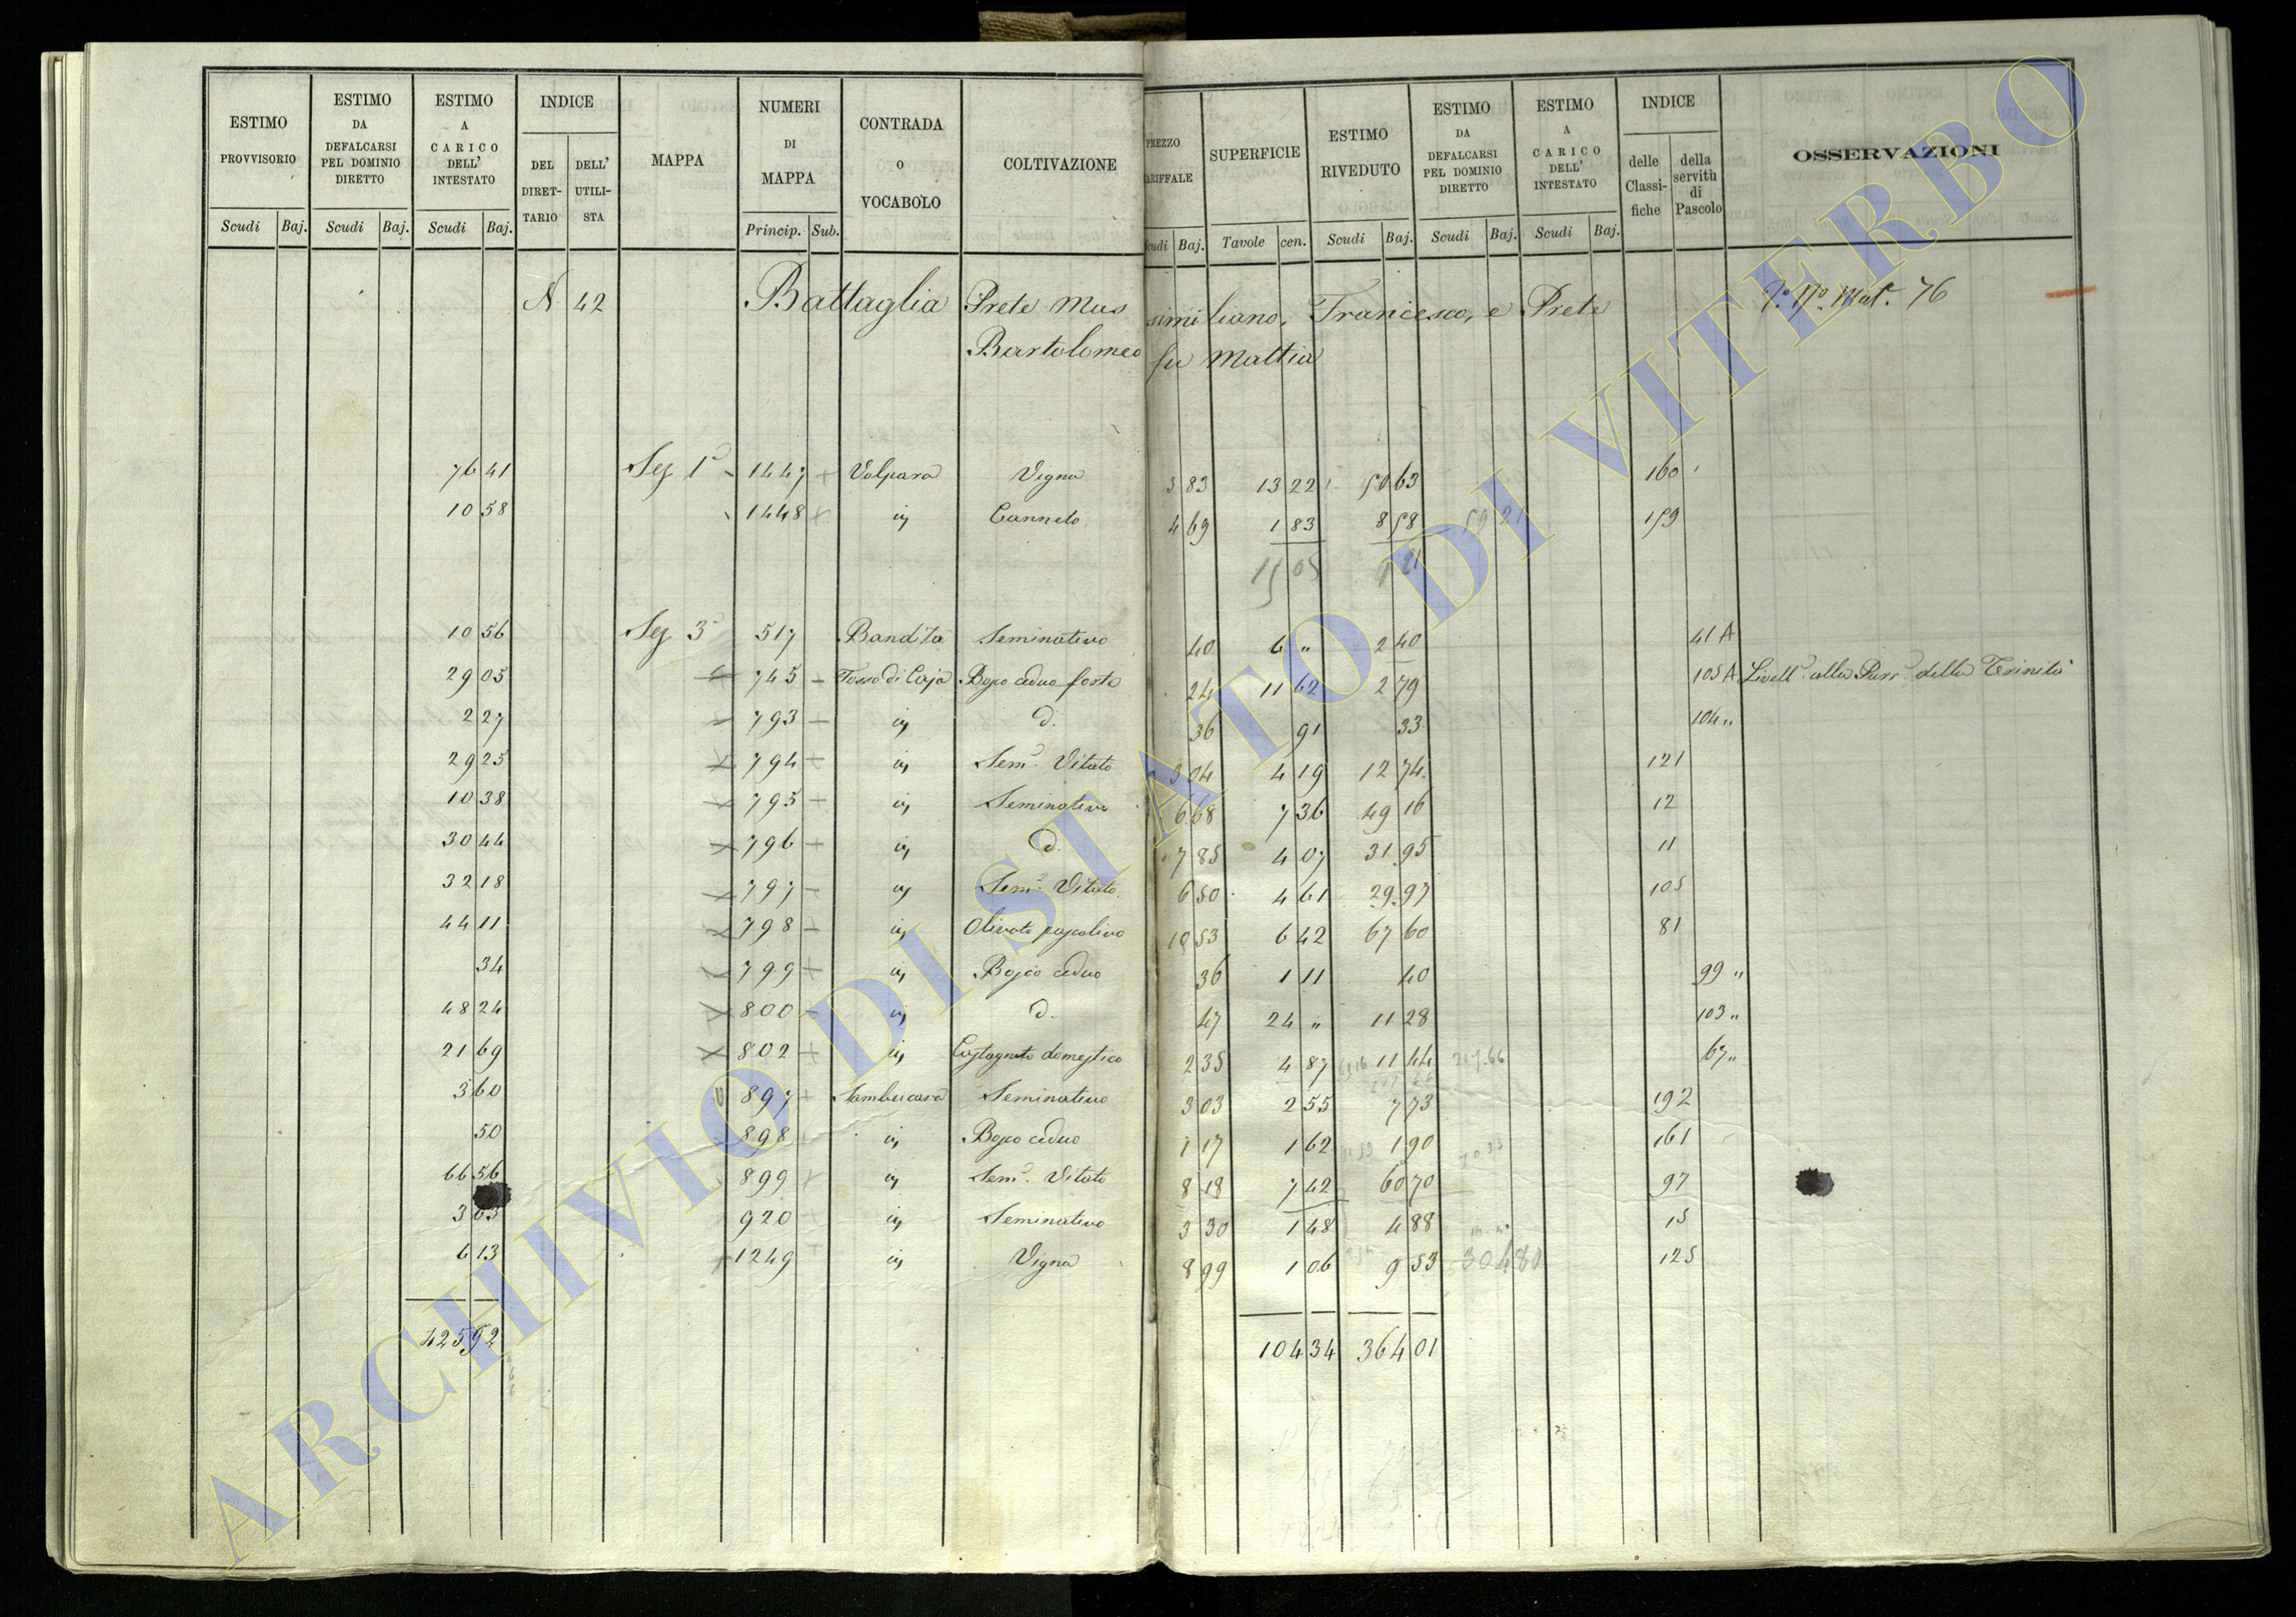 ESTIMO PROVVISORIO Scudi Baj.
ESTIMO DA DEFALCARSI PEL DOMINIO DIRETTO Scudi Baj.
ESTIMO A CARICO DELL' INTESTATO Scudi Baj.
INDICE DEL DIRET-TARIO DELL' UTILI-STA
MAPPA
NUMERI DI MAPPA Princip. Sub.
CONTRADA O VOCABOLO
COLTIVAZIONE
PREZZO TARIFFALE Scudi Baj.
SUPERFICIE Tavole cen.
ESTIMO RIVEDUTO Scudi Baj.
ESTIMO DA DEFALCARSI PEL DOMINIO DIRETTO Scudi Baj.
ESTIMO A CARICO DELL' INTESTATO Scudi Baj.
INDICE delle Classi-fiche della servitù di Pascolo
OSSERVAZIONI
N 42 Battaglia Prete Massimiliano, Francesco, e Prete 76
Bartolomeo fu Mattia
76 41 Sez 1ª 1447 Valpara Vigna 3 83 13 22 50 63 160
10 58 1448 Canneto 4 69 1 83 8 58 59 21 159
15 05
10 56 Sez 3ª 517 Bandita Seminativo 40 6 " 2 40 41 A
29 05 745 Fosso di Caja Bosco ceduo forte 24 11 62 2 79 105 A Livellº alla Parrª della Trinità
2 27 793 d. 36 91 33 104 "
29 25 794 Semº Vitato 3 04 4 19 12 74 121
10 38 795 Seminativo 6 68 7 36 49 16 12
30 44 796 d. 7 85 4 07 31 95 11
32 18 797 Semº Vitato 6 50 4 61 29 97 105
44 11 798 Olivato pascolivo 10 53 6 42 67 60 81
34 799 Bosco ceduo 36 1 11 40 99 "
48 24 800 d. 47 24 " 11 28 103 "
21 69 802 Castagneto domestico 2 35 4 87 11 44 217.66 67 "
3 60 897 Sambucara Seminativo 3 03 2 55 7 73 192
50 898 Bosco ceduo 1 17 1 62 1 90 161
66 56 899 Semº Vitato 8 18 7 42 60 70 97
3 63 920 Seminativo 3 30 1 48 4 88 15
6 13 1249 Vigna 8 99 1 06 9 53 304 80 125
425 92 104 34 364 01
ARCHIVIO DI STATO DI VITERBO